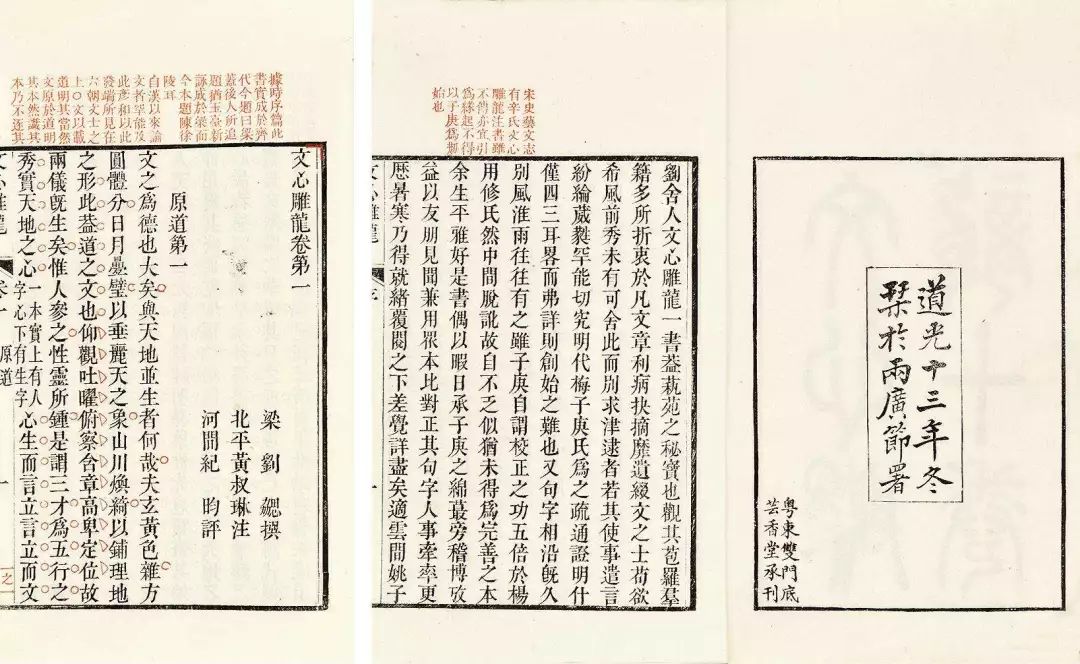 道光十三年冬
栞於兩廣節署
粵東雙門底
芸香堂承刊
宋史藝文志
有辛氏文心
雕龍注書雖
不傳亦宜引
為緣起不得
以子庚為刱
始也
劉舍人文心雕龍一書葢蓺苑之秘寶也觀其苞羅羣
籍多所折衷於凡文章利病抉摘靡遺綴文之士苟欲
希風前秀未有可舍此而別求津逮者若其使事遣言
紛綸葳蕤罕能切究明代梅子庚氏為之疏通證明什
僅四三耳畧而弗詳則創始之難也又句字相沿旣久
別風淮雨往往有之雖子庚自謂校正之功五倍於楊
用修氏然中間脫訛故自不乏似猶未得為完善之本
余生平雅好是書偶以暇日承子庚之綿蕞旁稽博攷
益以友朋見聞兼用眾本比對正其句字人事牽率更
歷暑寒乃得就緒覆閱之下差覺詳盡矣適雲間姚子
文心雕龍 序 一
據時序篇此
書實成於齊
代今題曰梁
蓋後人所追
題猶玉臺新
詠成於梁而
今本題陳徐
陵耳
自漢以來論
文者罕能及
此彥和以此
發端所見在
六朝文士之
上○文以載
道明其當然
文原於道明
其本然識其
本乃不逐其
文心雕龍卷第一
梁 劉勰撰
北平黃叔琳注
河間紀昀評
原道第一
文之為德也大矣與天地並生者何哉夫玄黃色雜方
圓體分日月疊璧以垂麗天之象山川煥綺以鋪理地
之形此葢道之文也仰觀吐曜俯察含章高卑定位故
兩儀旣生矣惟人參之性靈所鍾是謂三才為五行之
秀實天地之心一本實上有人字心下有生字心生而言立言立而文
文心雕龍 卷一 原道 一